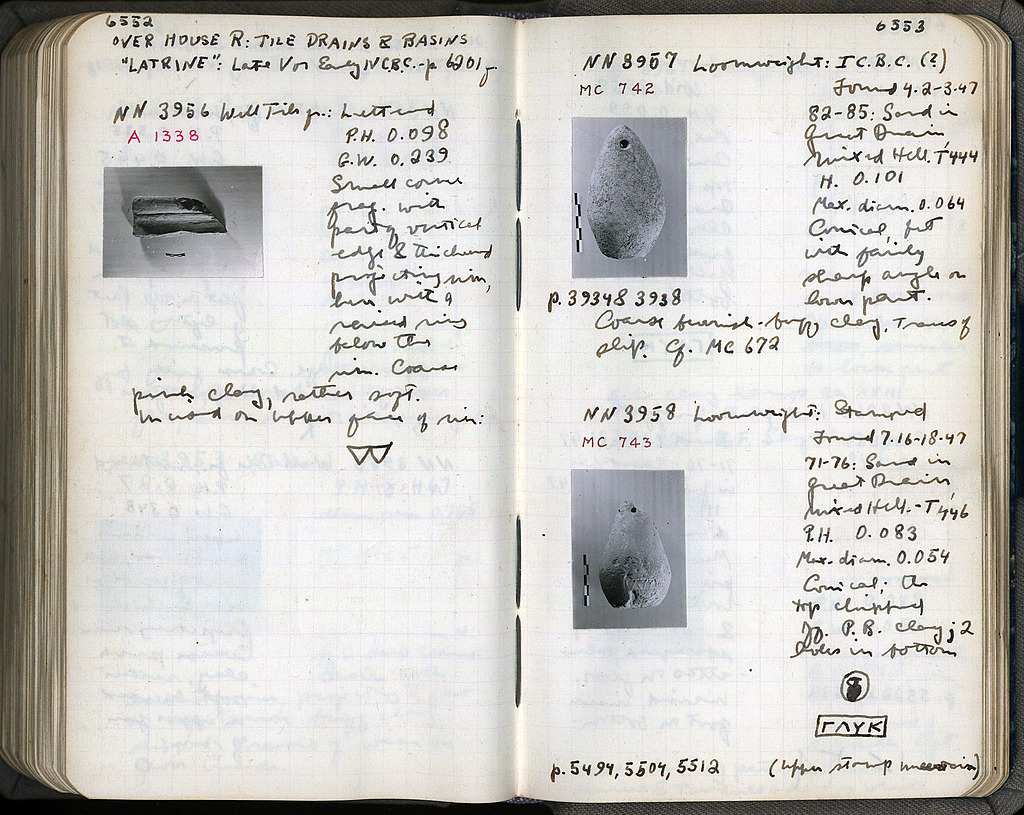 6552
OVER HOUSE R: TILE DRAINS & BASINS
"LATRINE": Late V or Early IV C.B.C. - p. 6201 f.
NN 3956 Well Tile fr.: Lettered
A 1338
P.H. 0.098
G.W. 0.239
Small corner
frag. with
part of vertical
edge & thickened
projecting rim,
here with a
raised ring
below the
rim. Coarse
pink clay, rather soft.
Incised on upper face of rim:
6553
NN 3957 Loomweight: I C.B.C. (?)
MC 742
Found 4-2-3-47
82-85: Sand in
Great Drain
mixed Hell. T 444
H. 0.101
Max. diam. 0.064
Conical, but
with fairly
sharp angle on
lower part.
p. 3934 & 3938
Coarse brownish-buff clay, Trans of
slip. Cf. MC 672
NN 3958 Loomweight: Stamped
MC 743
Found 7-16-18-47
71-76: Sand in
Great Drain,
mixed Hell. - T 446
P.H. 0.083
Max. diam. 0.054
Conical; the
top chipped
P.B. clay; 2
holes in bottom
ΓΛΥΚ
p. 5494, 5504, 5512
(Upper stamp uncertain)